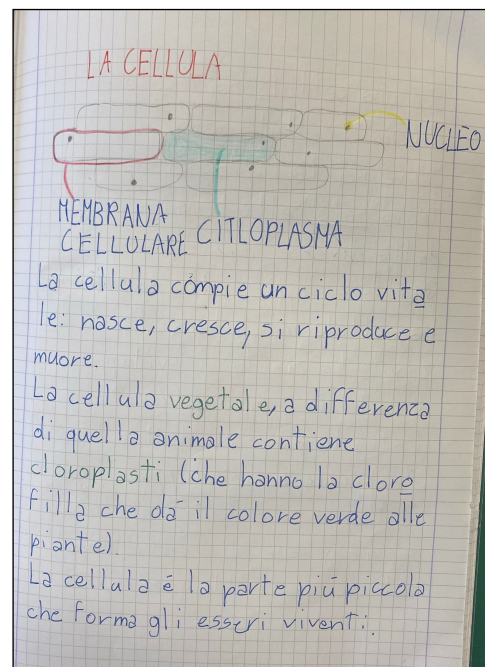 LA CELLULA
NUCLEO
MEMBRANA
CELLULARE
CITLOPLASMA
La cellula compie un ciclo vita
le: nasce, cresce, si riproduce e
muore.
La cellula vegetale, a differenza
di quella animale contiene
cloroplasti (che hanno la cloro
filla che dà il colore verde alle
piante).
La cellula é la parte piú piccola
che forma gli esseri viventi.